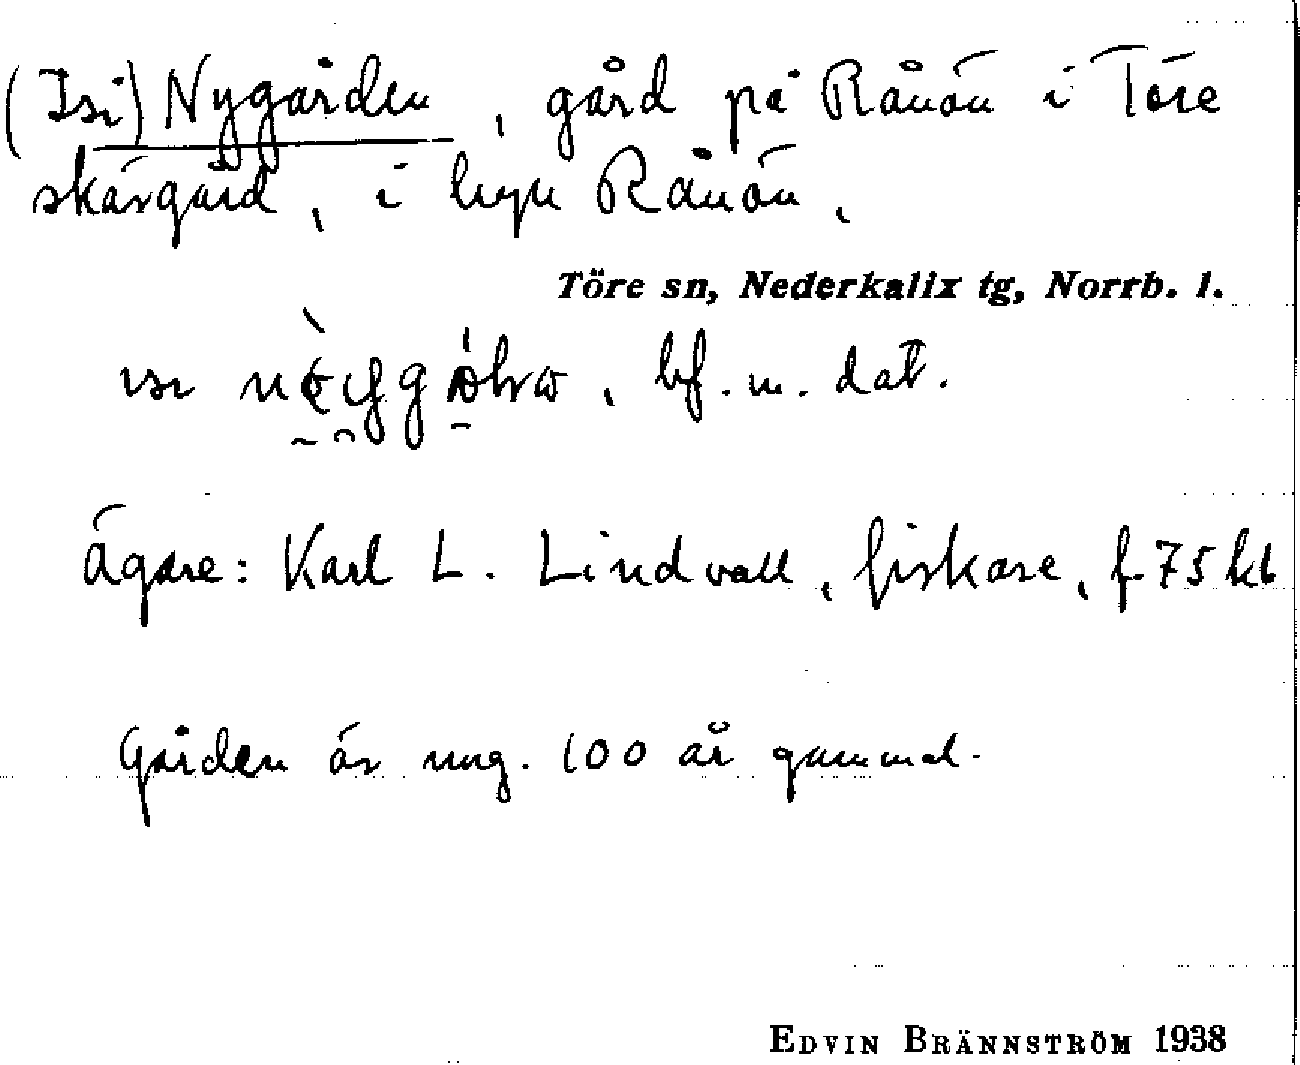 (Isi) Nygården, gård på Rånön i Töre
skärgård, i byn Rånön.
Töre sn, Nederkalix tg, Norrb. l.
bf. m. dat.
Ägare: Karl L. Lindvall, fiskare, f. 75 kb
Gården är ung. 100 år gammal.
EDVIN BRÄNNSTRÖM 1938